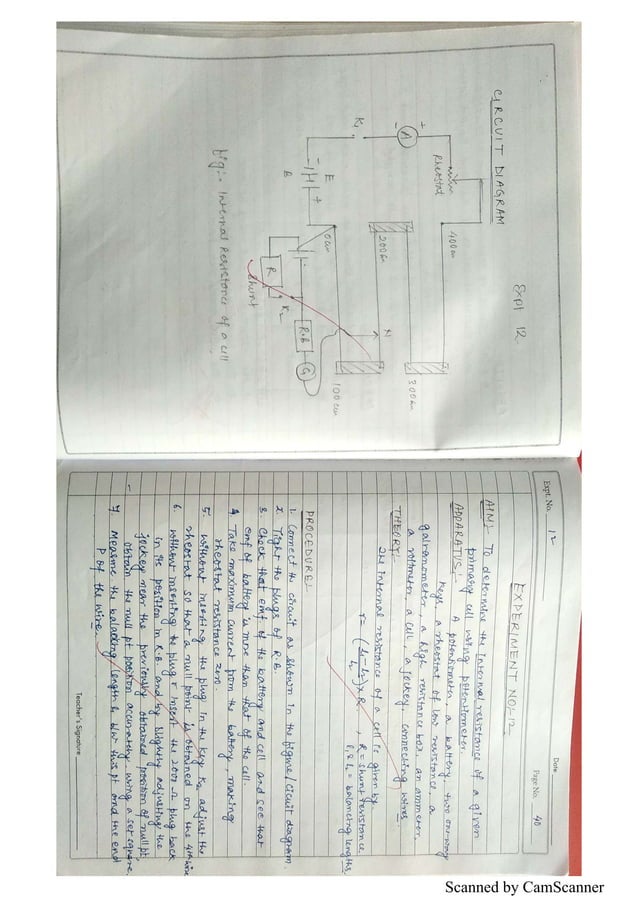 CIRCUIT DIAGRAM
Expt 12
Rheostat
400cm
+
A
-
K1
200cm
300cm
E
+
B
0cm
N
100cm
R
K2
Shunt
R.B
G
fig:- Internal Resistance of a cell
Expt. No. 12
Date
Page No. 40
EXPERIMENT NO:-12
AIM:- To determine the internal resistance of a given
primary cell using potentiometer.
APPARATUS:- A potentiometer, a battery, two oneway
keys, a rheostat of low resistance, a
galvanometer, a high resistance box, an ammeter,
a voltmeter, a cell, a jockey, connecting wires
THEORY:-
The internal resistance of a cell is given by
r = (l1-l2/l2) x R , R = shunt resistance
l1 & l2 = balancing lengths
PROCEDURE:-
1. Connect the circuit as shown in the figure/circuit diagram.
2. Tight the plugs of R.B.
3. Check that emf of the battery and cell and see that
emf of battery is more than that of the cell.
4. Take maximum current from the battery, making
rheostat resistance zero.
5. without inserting the plug in the key K2 adjust the
rheostat so that a null point is obtained on the 4th wire
6. without inserting the plug r insert the 2000 Ω plug back
in its position in R.B. and by slightly adjusting the
jockey near the previously obtained position of null pt,
obtain the null pt position accurately, using a set square.
7. Measure the balancing length l1 b/w this pt and the end
P of the wire.
Teacher's Signature
Scanned by CamScanner